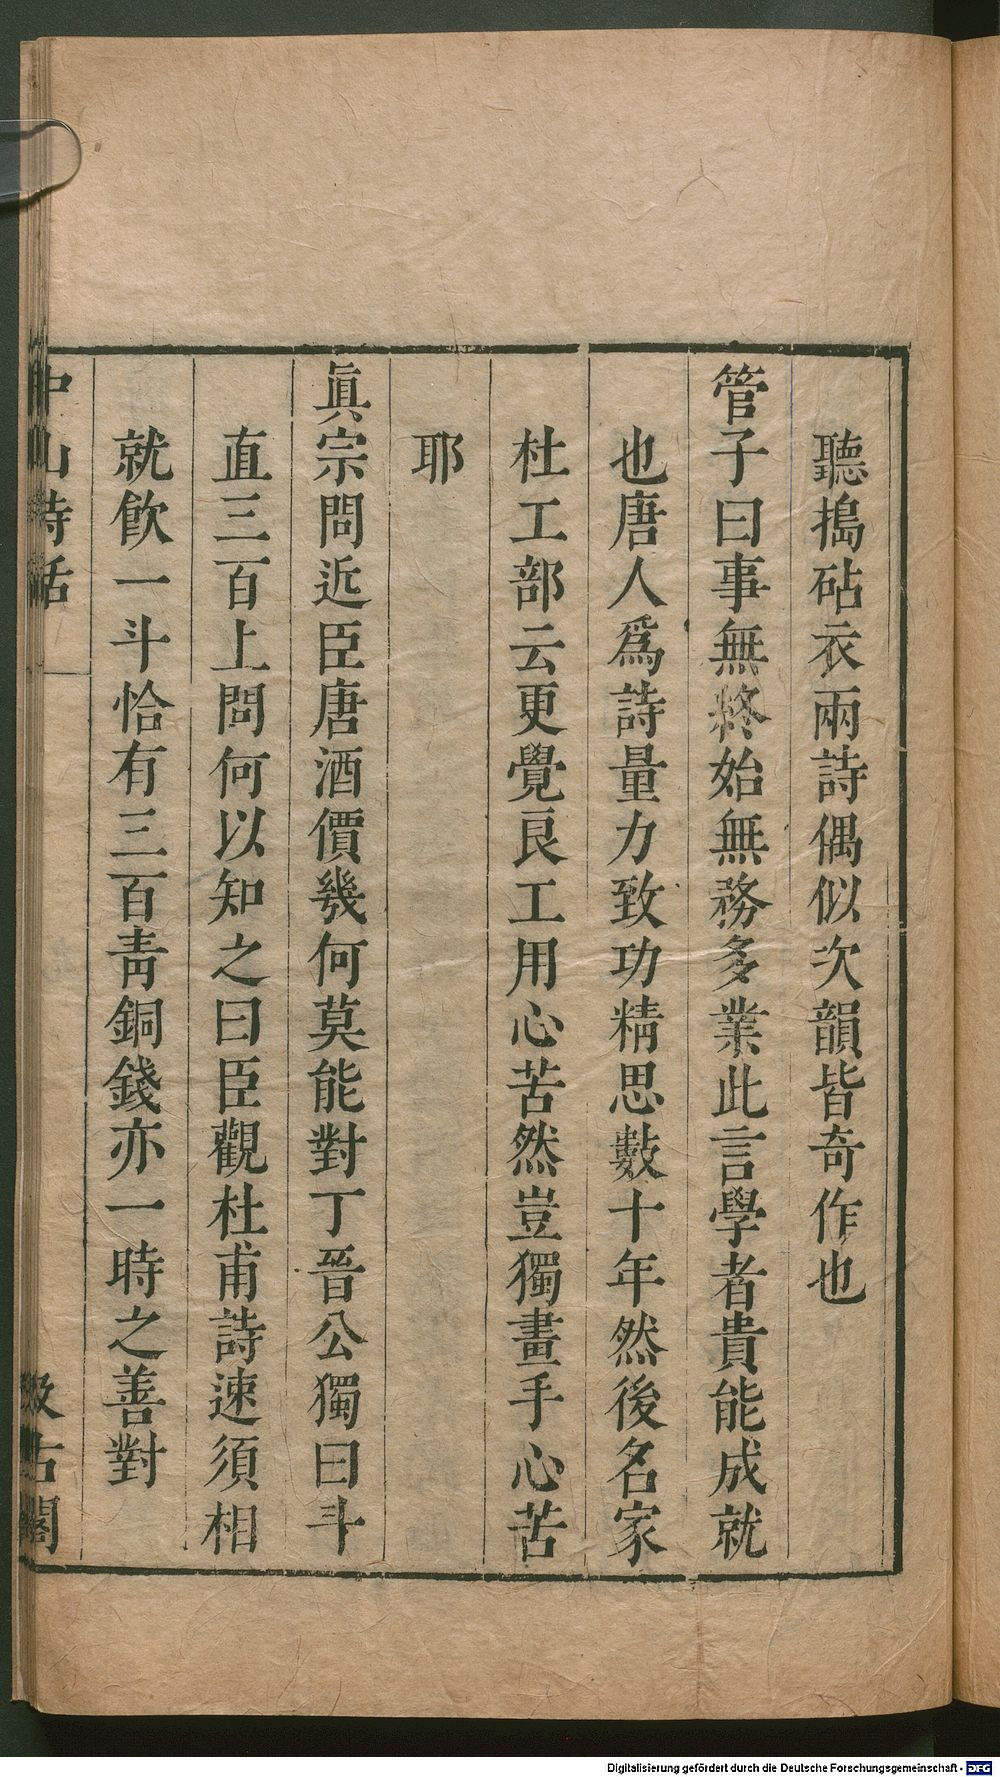 聽搗砧衣兩詩偶似次韻皆奇作也
管子曰事無終始無務多業此言學者貴能成就
也唐人爲詩量力致功精思數十年然後名家
杜工部云更覺良工用心苦然豈獨畫手心苦
耶
眞宗問近臣唐酒價幾何莫能對丁晉公獨曰斗
直三百上問何以知之曰臣觀杜甫詩速須相
就飮一斗恰有三百青銅錢亦一時之善對
中山詩話 一
汲古閣
Digitalisierung gefördert durch die Deutsche Forschungsgemeinschaft - DFG